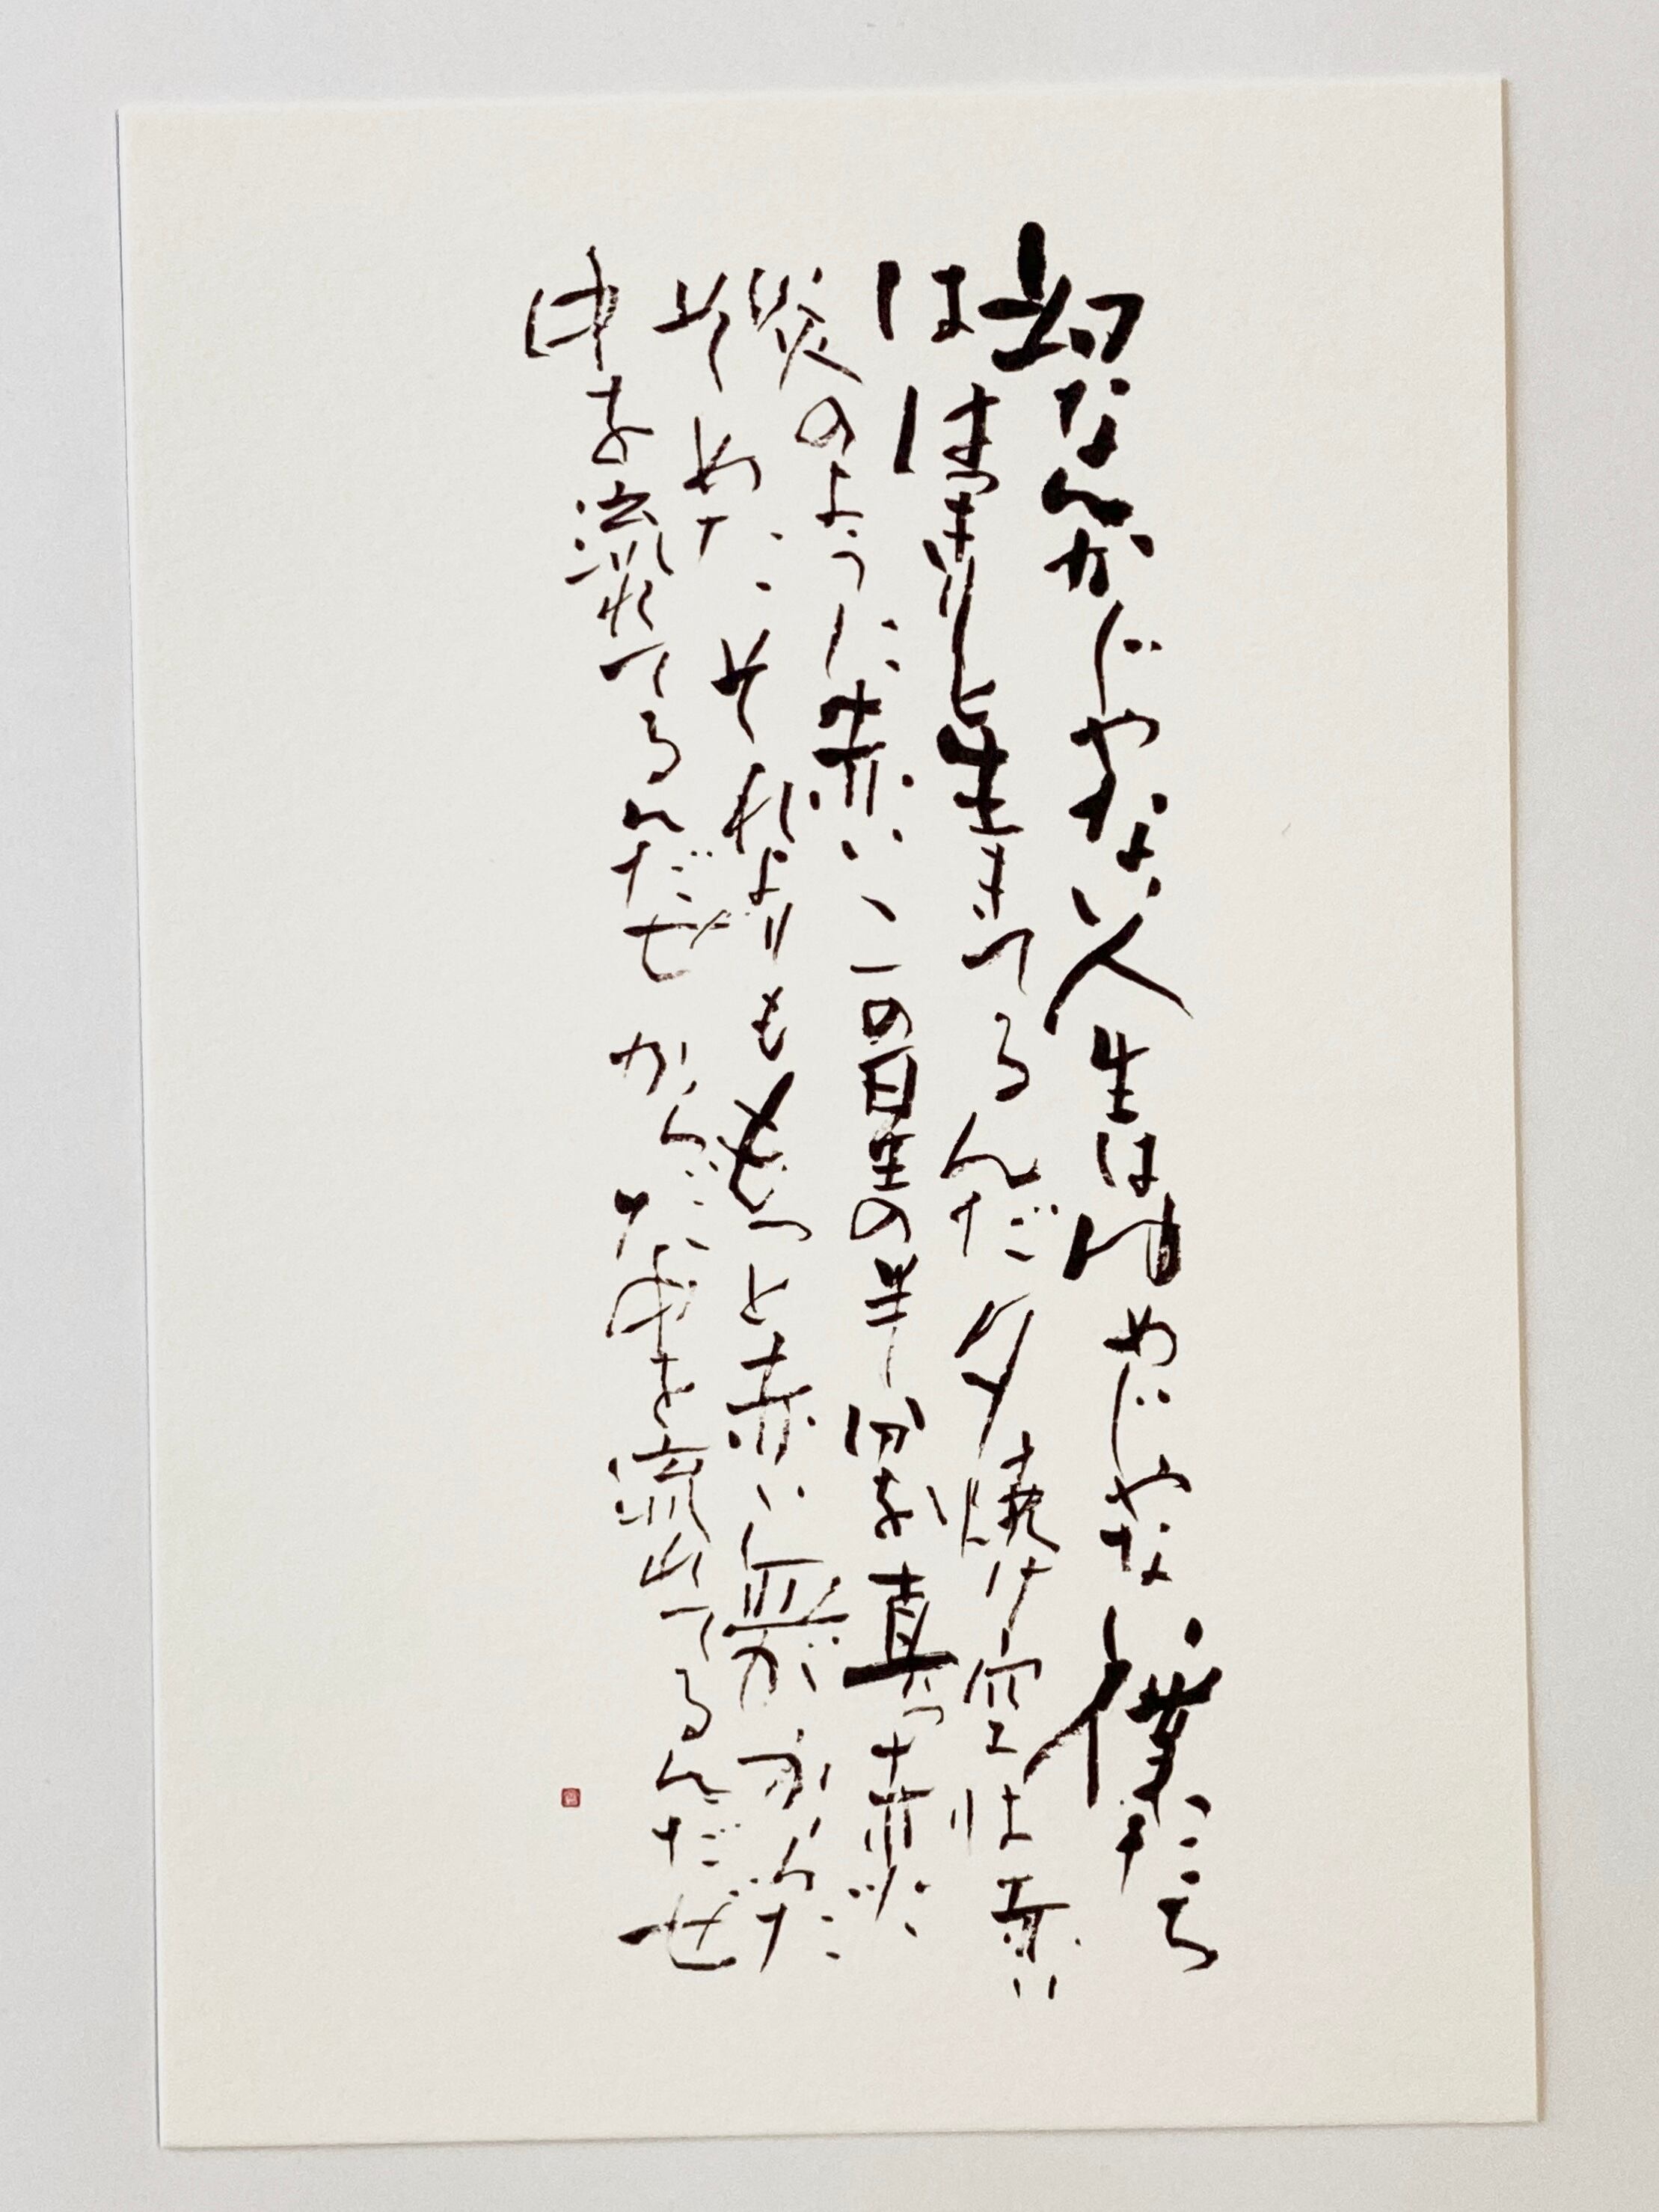 幻なんかじゃない人生はゆめじゃない僕たち
ははっきりと生きてるんだ夕焼け空は赤い
炎のように赤いこの星の半分を真っ赤に
そめたそれよりももっと赤い血がからだ
中を流れてるんだぜからだ中を流れてるんだぜ